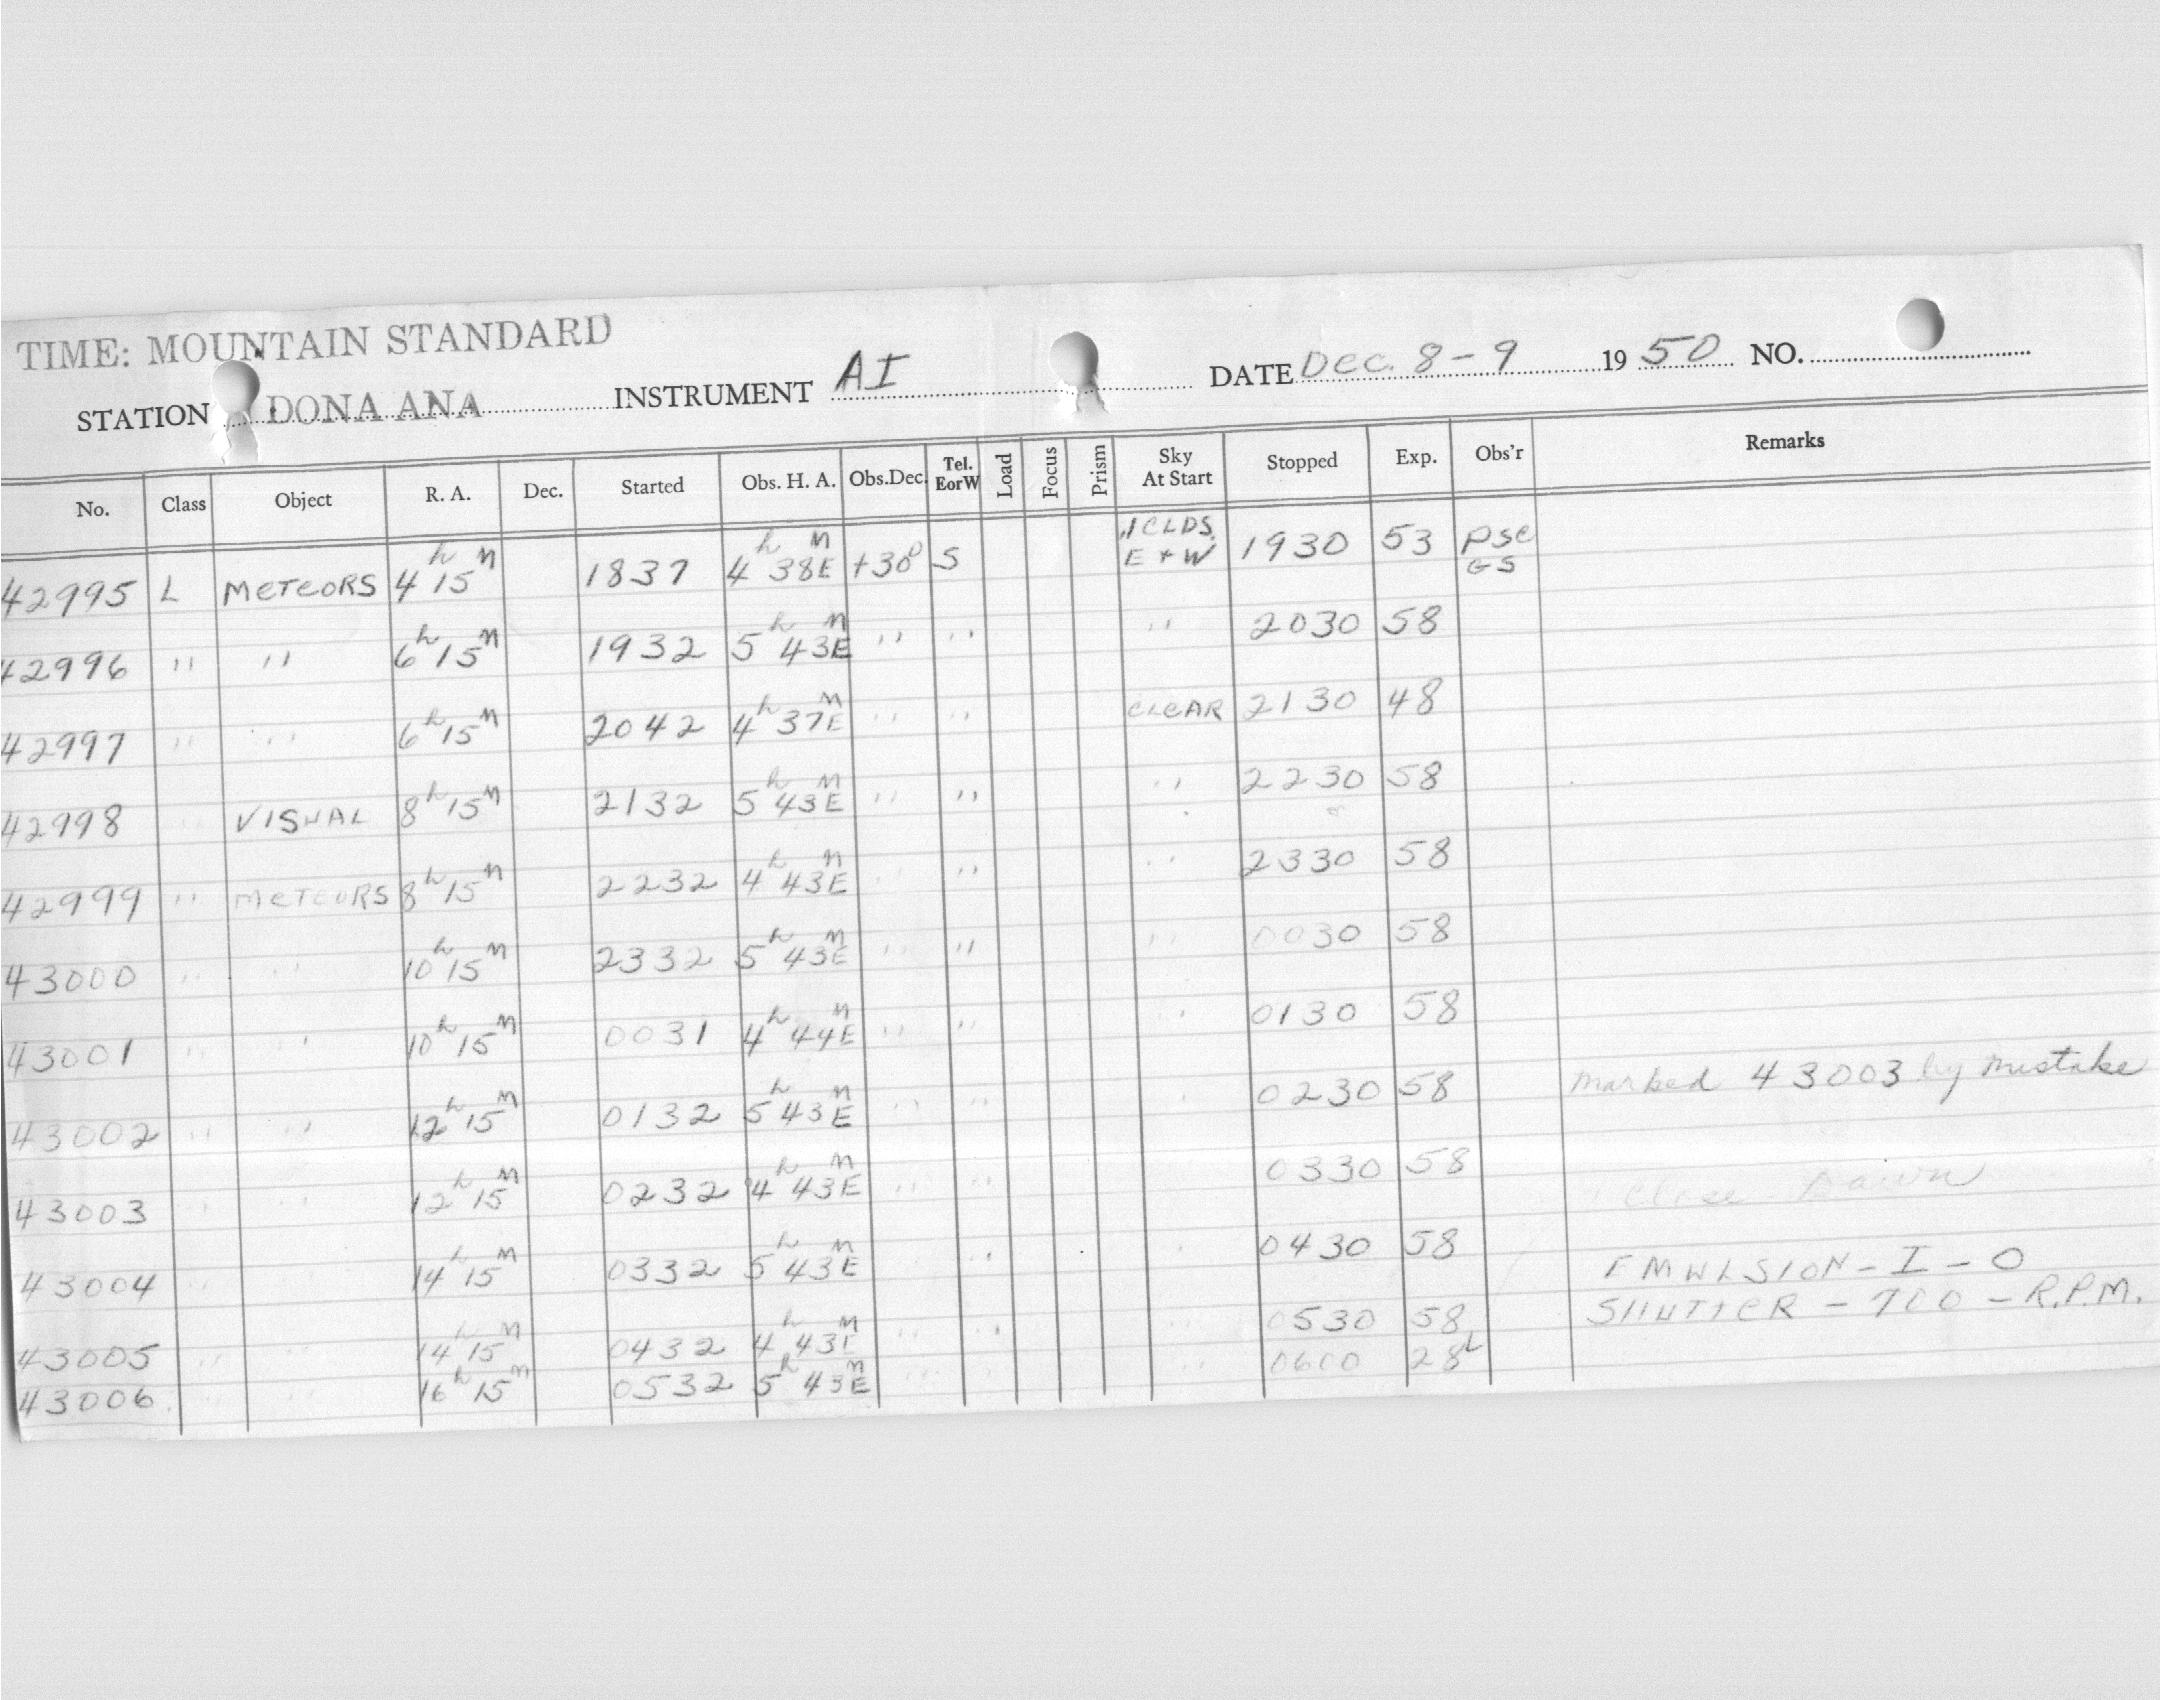 TIME: MOUNTAIN STANDARD
STATION DONA ANA INSTRUMENT AI DATE DEC. 8-9 1950 NO.
No. Class Object R. A. Dec. Started Obs. H. A. Obs.Dec. Tel. EorW Load Focus Prism Sky At Start Stopped Exp. Obs'r Remarks
42995 L METEORS 4h 15m 1837 4h 38mE +30° S .1 CLDS. E + W 1930 53 PSC GS
42996 " " 6h 15m 1932 5h 43mE " " " 2030 58
42997 " " 6h 15m 2042 4h 37mE " " CLEAR 2130 48
42998 " VISUAL 8h 15m 2132 5h 43mE " " " 2230 58
42999 " METEORS 8h 15m 2232 4h 43mE " " " 2330 58
43000 " " 10h 15m 2332 5h 43mE " " " 0030 58
43001 " " 10h 15m 0031 4h 44mE " " " 0130 58
43002 " " 12h 15m 0132 5h 43mE " " " 0230 58 Marked 43003 by mistake
43003 " " 12h 15m 0232 4h 43mE " " 0330 58 Close Dawn
43004 " 14h 15m 0332 5h 43mE " " 0430 58 EMULSION - I - O
43005 " " 14h 15m 0432 4h 43mE " " " 0530 58 SHUTTER - 700 - R.P.M.
43006 " " 16h 15m 0532 5h 43mE " " " 0600 28